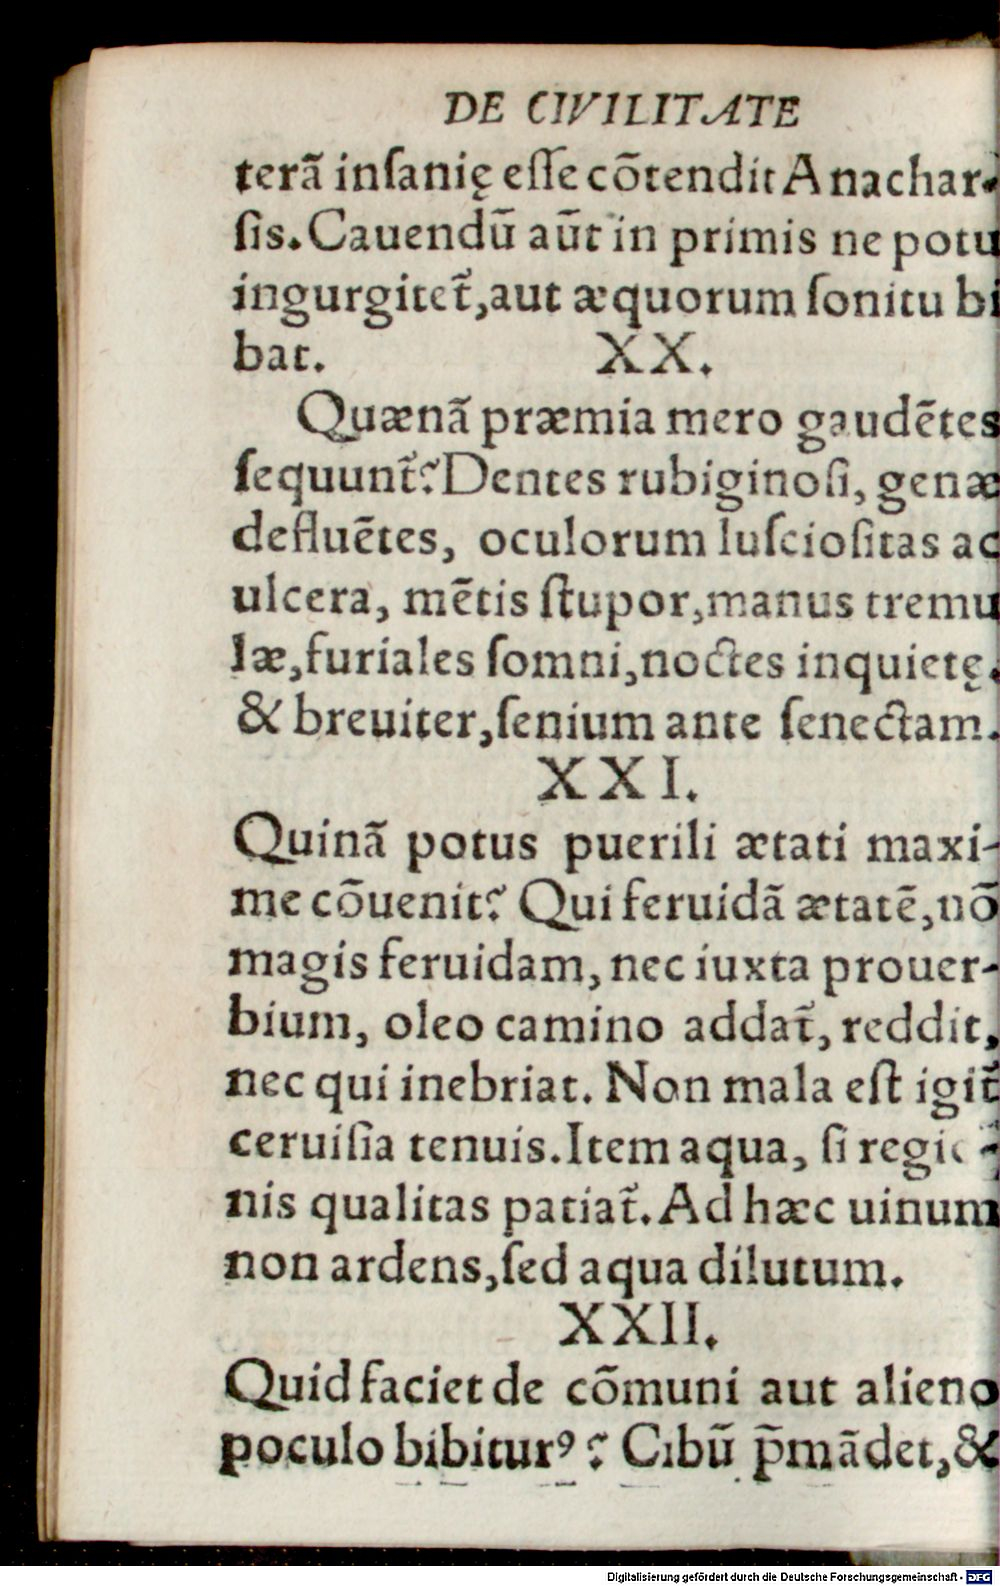 DE CIVILITATE
terã inſanię eſſe cõtendit Anachar-
ſis. Cauendũ aũt in primis ne potu
ingurgitet᷑, aut æquorum ſonitu bi
bat. XX.
Quænã præmia mero gaudẽtes
ſequunt᷑? Dentes rubiginoſi, genæ
defluẽtes, oculorum luſcioſitas ac
ulcera, mẽtis ſtupor, manus tremu
læ, furiales ſomni, noctes inquietę,
& breuiter, ſenium ante ſenectam.
XXI.
Quinã potus puerili ætati maxi-
me cõuenit? Qui feruidã ætatẽ, nõ
magis feruidam, nec iuxta prouer-
bium, oleo camino addat᷑, reddit,
nec qui inebriat. Non mala eſt igit᷑
ceruiſia tenuis. Item aqua, ſi regio-
nis qualitas patiat᷑. Ad hæc uinum
non ardens, ſed aqua dilutum.
XXII.
Quid faciet de cõmuni aut alieno
poculo bibiturꝰ? Cibũ p̄mãdet, &
Digitalisierung gefördert durch die Deutsche Forschungsgemeinschaft - DFG